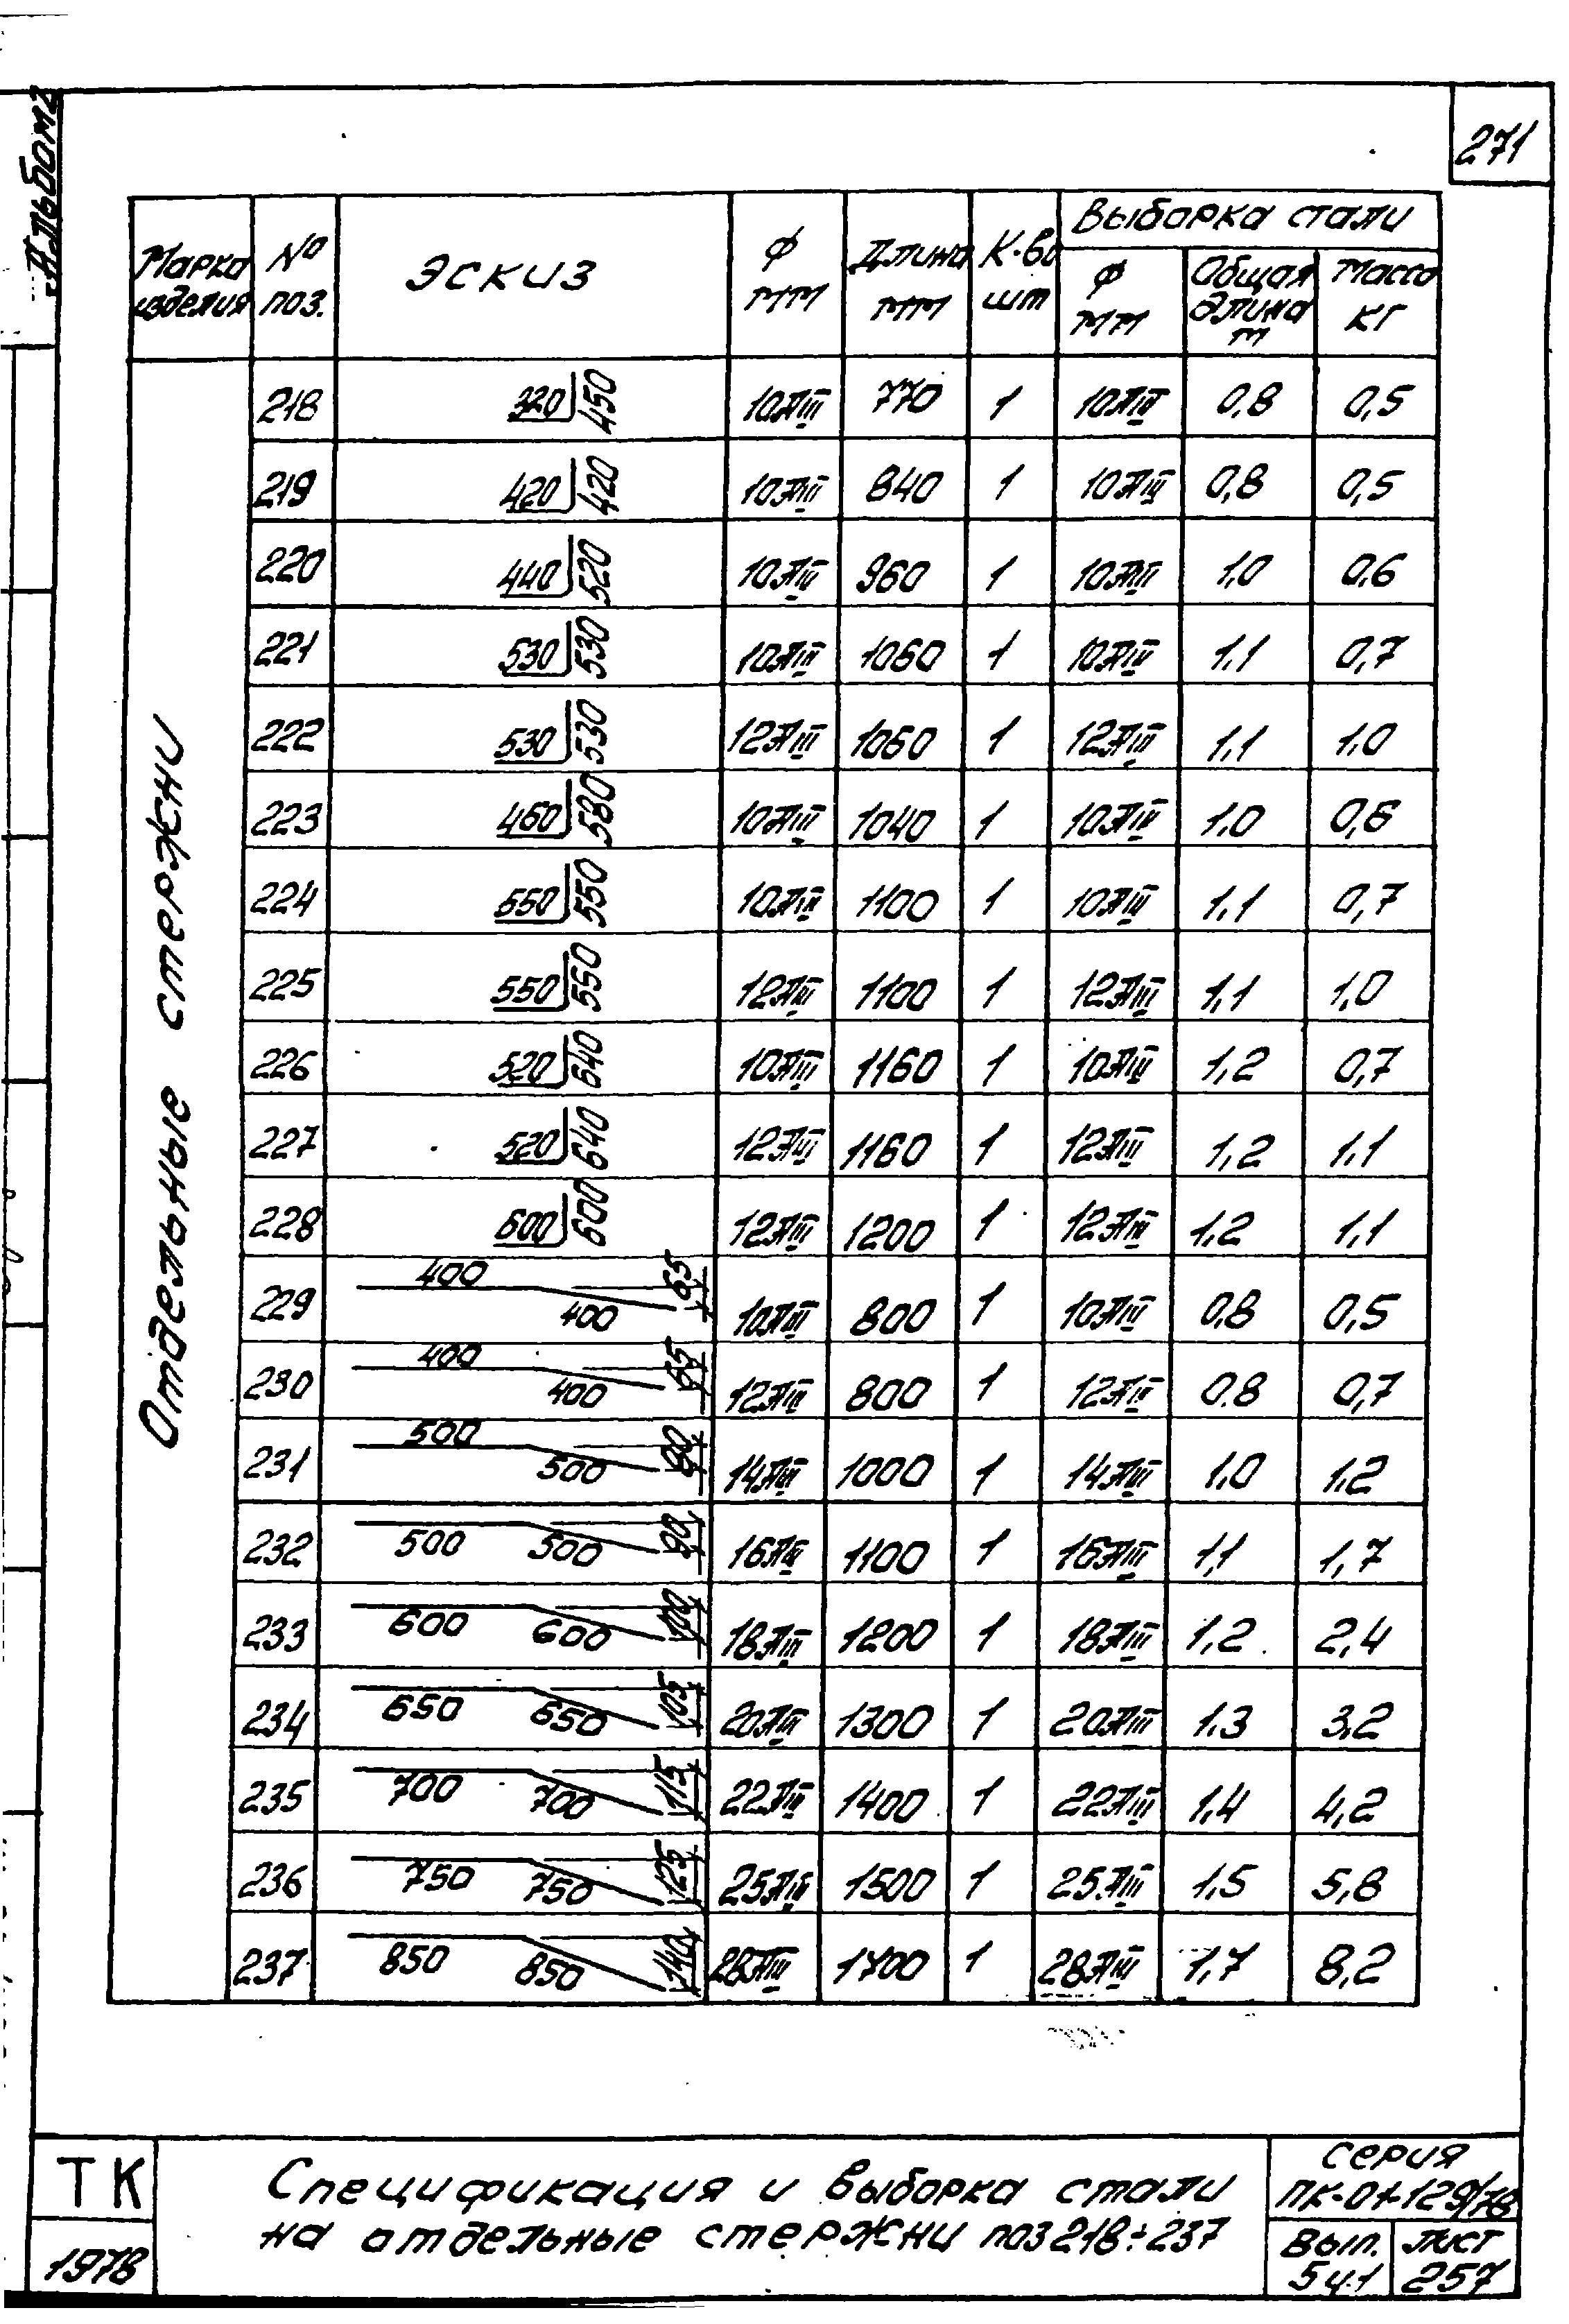 Альбом 2
271
Марка изделия | № поз. | Эскиз | Ф мм | Длина мм | К-во шт | Выборка стали
Ф мм | Общая длина м | Масса кг
Отдельные стержни
218 | 320 450 | 10АIII | 770 | 1 | 10АIII | 0,8 | 0,5
219 | 420 420 | 10АIII | 840 | 1 | 10АIII | 0,8 | 0,5
220 | 440 520 | 10АIII | 960 | 1 | 10АIII | 1,0 | 0,6
221 | 530 530 | 10АIII | 1060 | 1 | 10АIII | 1,1 | 0,7
222 | 530 530 | 12АIII | 1060 | 1 | 12АIII | 1,1 | 1,0
223 | 460 580 | 10АIII | 1040 | 1 | 10АIII | 1,0 | 0,6
224 | 550 550 | 10АIII | 1100 | 1 | 10АIII | 1,1 | 0,7
225 | 550 550 | 12АIII | 1100 | 1 | 12АIII | 1,1 | 1,0
226 | 520 640 | 10АIII | 1160 | 1 | 10АIII | 1,2 | 0,7
227 | 520 640 | 12АIII | 1160 | 1 | 12АIII | 1,2 | 1,1
228 | 600 600 | 12АIII | 1200 | 1 | 12АIII | 1,2 | 1,1
229 | 400 400 65 | 10АIII | 800 | 1 | 10АIII | 0,8 | 0,5
230 | 400 400 65 | 12АIII | 800 | 1 | 12АIII | 0,8 | 0,7
231 | 500 500 80 | 14АIII | 1000 | 1 | 14АIII | 1,0 | 1,2
232 | 500 500 90 | 16АIII | 1100 | 1 | 16АIII | 1,1 | 1,7
233 | 600 600 100 | 18АIII | 1200 | 1 | 18АIII | 1,2 | 2,4
234 | 650 650 105 | 20АIII | 1300 | 1 | 20АIII | 1,3 | 3,2
235 | 700 700 115 | 22АIII | 1400 | 1 | 22АIII | 1,4 | 4,2
236 | 750 750 125 | 25АIII | 1500 | 1 | 25АIII | 1,5 | 5,8
237 | 850 850 140 | 28АIII | 1700 | 1 | 28АIII | 1,7 | 8,2
ТК
1978
Спецификация и выборка стали
на отдельные стержни поз 218÷237
Серия
ПК-01-129/78
Вып. 5 ч.1
Лист 257